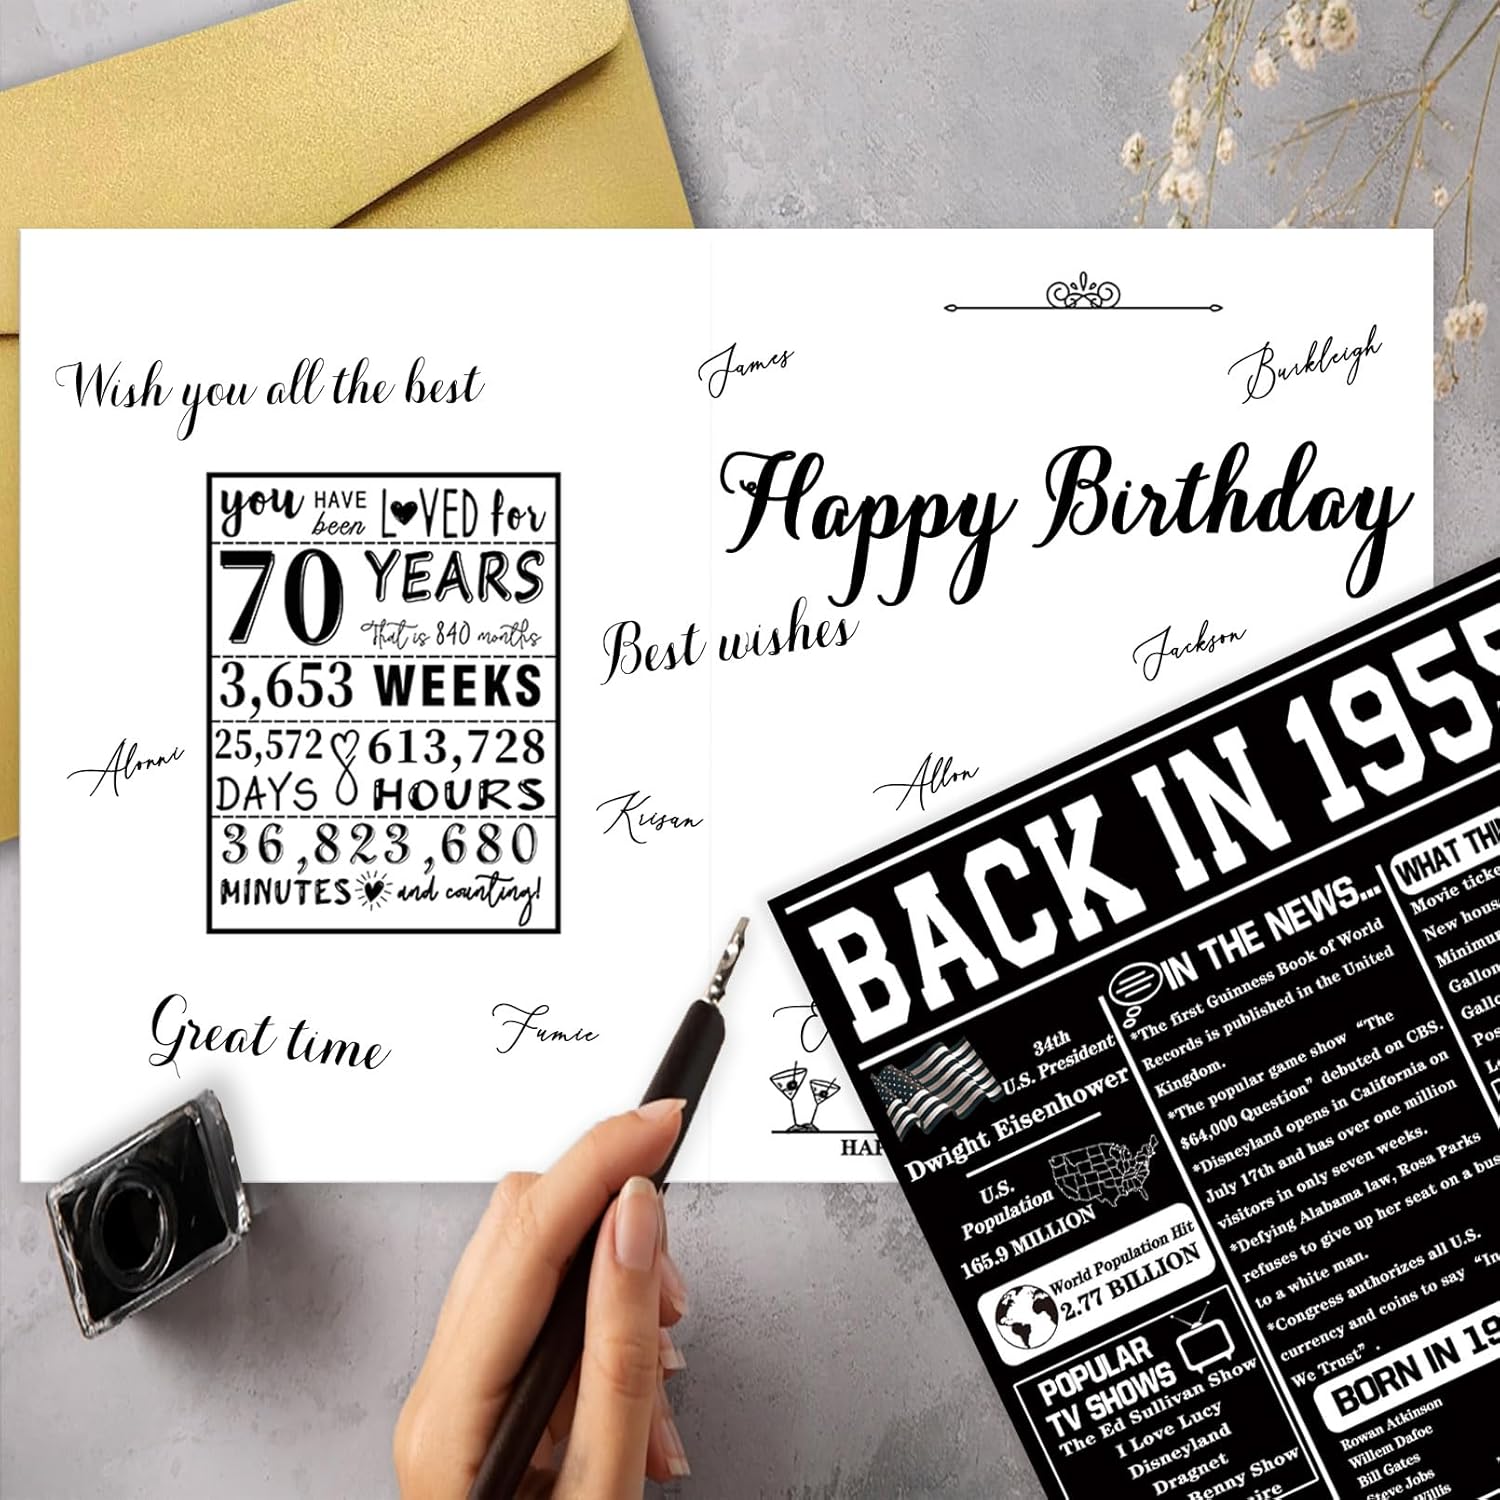 Wish you all the best
James
Burkleigh
Happy Birthday
you HAVE been LOVED for
70 YEARS
That is 840 months
3,653 WEEKS
25,572 613,728
DAYS HOURS
36,823,680
MINUTES and counting!
Best wishes
Jackson
Alonni
Krisan
Allon
Great time
Fumie
BACK IN 1955
34th
U.S. President
Dwight Eisenhower
U.S.
Population
165.9 MILLION
World Population Hit
2.77 BILLION
POPULAR
TV SHOWS
The Ed Sullivan Show
I Love Lucy
Disneyland
Dragnet
Benny Show
IN THE NEWS...
*The first Guinness Book of World
Records is published in the United
Kingdom.
*The popular game show "The
$64,000 Question" debuted on CBS.
*Disneyland opens in California on
July 17th and has over one million
visitors in only seven weeks.
*Defying Alabama law, Rosa Parks
refuses to give up her seat on a bus
to a white man.
*Congress authorizes all U.S.
currency and coins to say "In
We Trust".
BORN IN 19
Rowan Atkinson
Willem Dafoe
Bill Gates
Steve Jobs
Willis
WHAT
Movie
New